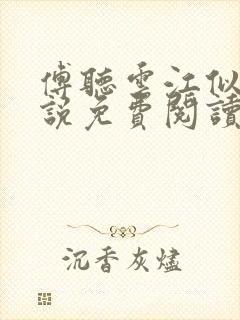 傅聽雲江似
說免費閱讀
沉香灰燼